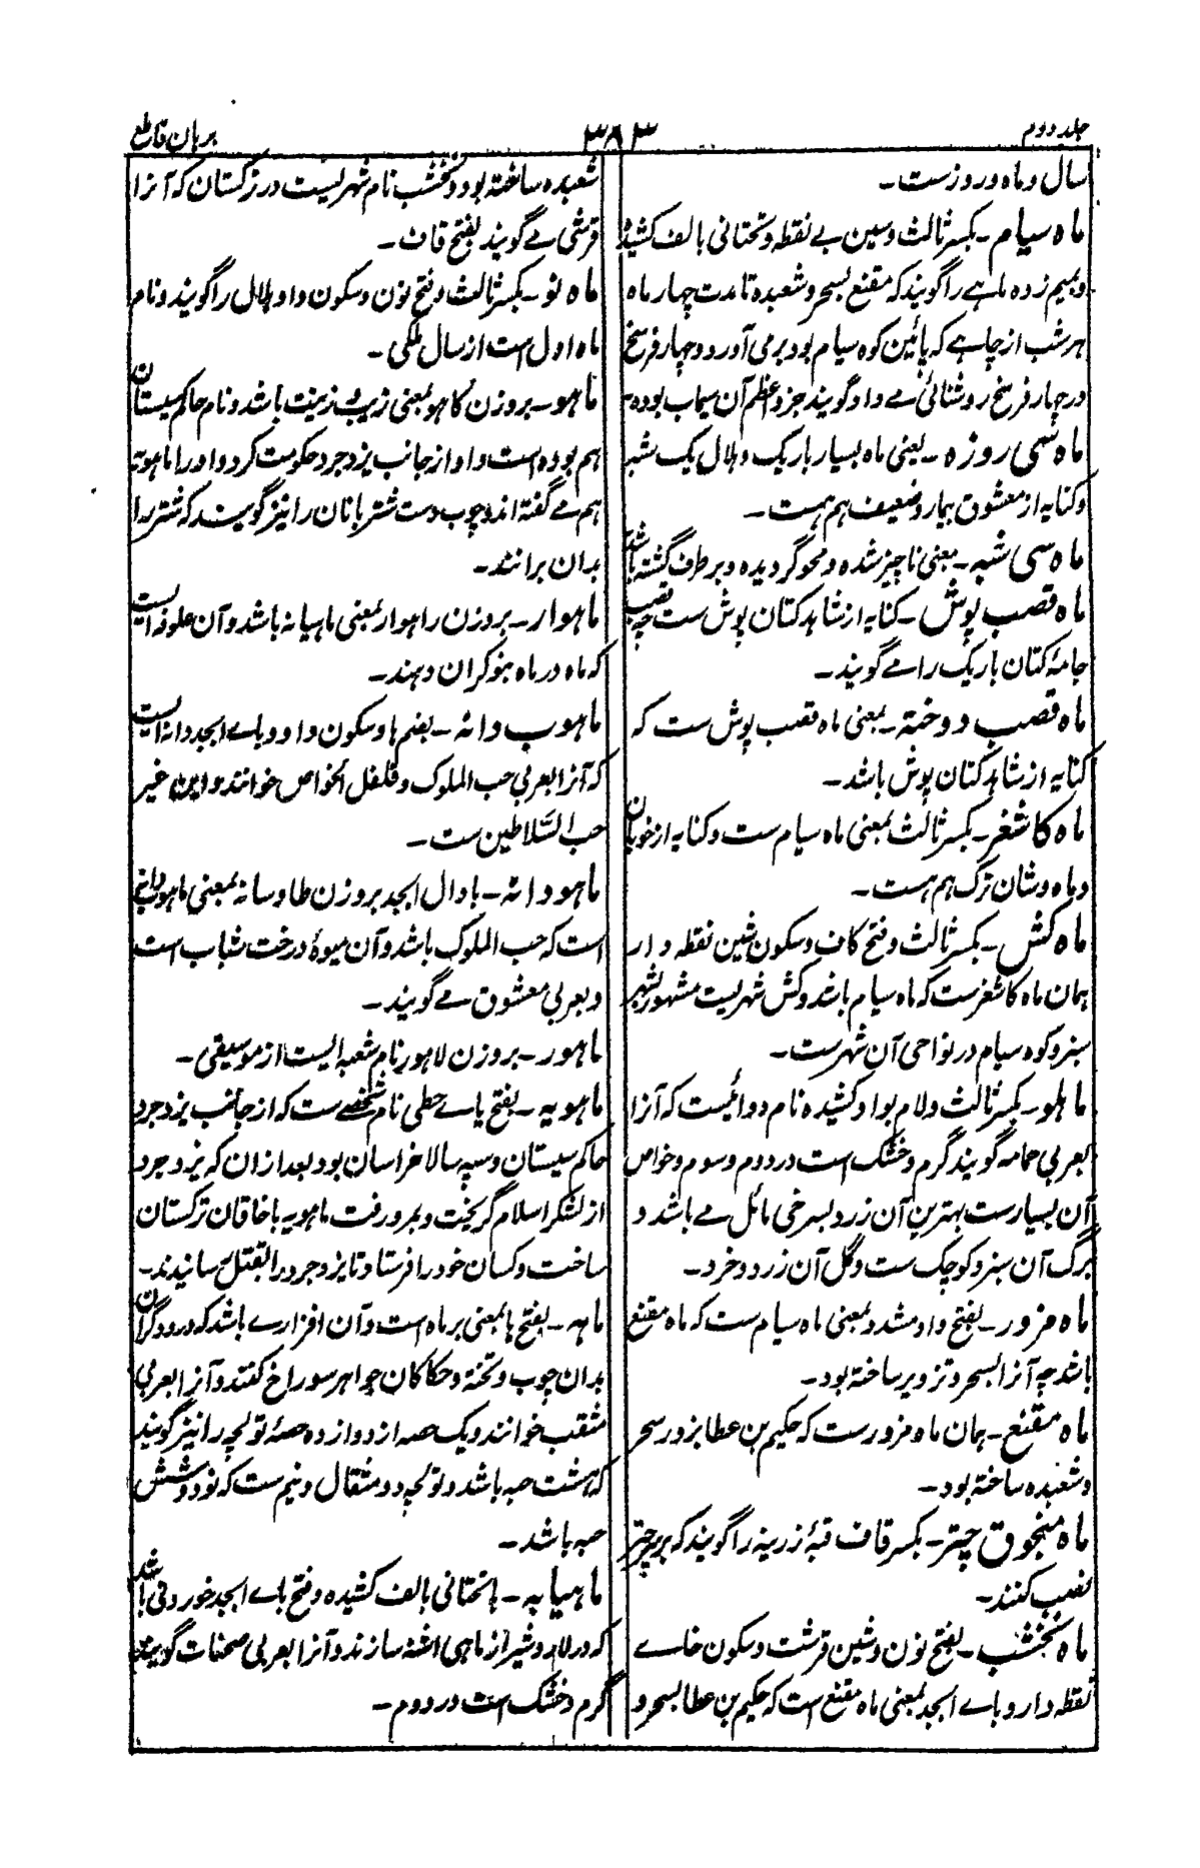 جلد دوم
۳۸۳
برهان قاطع
سال و ماه و روزست۔
ماه سیام۔ بکسر ثالث و سین بے نقطه و تحتانی بالف کشیده
و بمیم زده ماهے را گویند که مقنع بسحر و شعبده تا مدت چهار ماه
هر شب از چاهے که پائین کوه سیام بود برمی آورد و چهار فرسخ
در چهار فرسخ روشنائی مے داد گویند جزو اعظم آن سیماب بوده۔
ماه سی روزه۔ یعنی ماه بسیار باریک و هلال یک شبه
و کنایه از معشوق بیمار و ضعیف هم هست۔
ماه سی شبه۔ بمعنی ناچیز شده و محو گردیده و برطرف گشته باشد
ماه قصب پوش۔ کنایه از شاهد کتان پوش ست چه قصب
جامهٔ کتان باریک را مے گویند۔
ماه قصب دوخته۔ بمعنی ماه قصب پوش ست که
کنایه از شاهد کتان پوش باشد۔
ماه کاشغر۔ بکسر ثالث بمعنی ماه سیام ست و کنایه از خوبان
و ماه وشان ترک هم هست۔
ماه کش۔ بکسر ثالث و فتح کاف و سکون شین نقطه دار
همان ماه کاشغرست که ماه سیام باشد و کش شهریست مشهور بشهر
سبز و کوه سیام در نواحی آن شهرست۔
ماهلو۔ بکسر ثالث و لام بواو کشیده نام دوائیست که آنرا
بعربی حمامه گویند گرم و خشک است در دوم و سوم و خواص
آن بسیارست بهترین آن زرد بسرخی مائل مے باشد و
برگ آن سبز و کوچک ست و گل آن زرد و خرد۔
ماه مزور۔ بفتح واو مشدد بمعنی ماه سیام ست که ماه مقنع
باشد چه آنرا بسحر و تزویر ساخته بود۔
ماه مقنع۔ همان ماه مزورست که حکیم بن عطا بزور سحر
و شعبده ساخته بود۔
ماه منجوق چتر۔ بکسر قاف قبهٔ زرینه را گویند که بر سر چتر
نصب کنند۔
ماه نخشب۔ بفتح نون و شین قرشت و سکون خاے
نقطه دار و باے ابجد بمعنی ماه مقنع است که حکیم بن عطا بسحر و
شعبده ساخته بود و نخشب نام شهریست در ترکستان که آنرا
قرشی مے گویند بفتح قاف۔
ماه نو۔ بکسر ثالث و فتح نون و سکون واو هلال را گویند و نام
ماه اول است از سال ملکی۔
ماهو۔ بروزن کاهو بمعنی زیب و زینت باشد و نام حاکم سیستان
هم بوده است و او از جانب یزدجرد حکومت کرد و او را ماهویه
هم مے گفته اند و چوب دست شتربانان را نیز گویند که شتر را
بدان برانند۔
ماهوار۔ بروزن راهوار بمعنی ماهیانه باشد و آن علوفه ایست
که ماه در ماه بنوکران دهند۔
ماهوب دانه۔ بضم ها و سکون واو و باے ابجد دانه ایست
که آنرا بعربی حب الملوک و فلفل الخواص خوانند و این غیر
حب السّلاطین ست۔
ماهودانه۔ با دال ابجد بروزن طاوسانه بمعنی ماهوبدانه
است که حب الملوک باشد و آن میوهٔ درخت شباب است
و بعربی معشوق مے گویند۔
ماهور۔ بروزن لاهور نام شعبه ایست از موسیقی۔
ماهویه۔ بفتح یاے حطی نام شخصے ست که از جانب یزدجرد
حاکم سیستان و سپه سالار خراسان بود بعد ازان که یزدجرد
از لشکر اسلام گریخت و بمرو رفت ماهویه با خاقان ترکستان
ساخت و کسان خود را فرستاد تا یزدجرد را بقتل رسانیدند۔
ماهه۔ بفتح ها بمعنی برماه است و آن افزارے باشد که درودگران
بدان چوب و تخته و حکاکان جواهر سوراخ کنند و آنرا بعربی
مثقب خوانند و یک حصه از دوازده حصهٔ تولچه را نیز گویند
که هشت حبه باشد و تولچه دو مثقال و نیم ست که نود و شش
حبه باشد۔
ماهیابه۔ با تحتانی بالف کشیده و فتح باے ابجد خوردنی باشد
که در لار و شیراز از ماهی اشنه سازند و آنرا بعربی صحنات گویند
گرم و خشک است در دوم۔